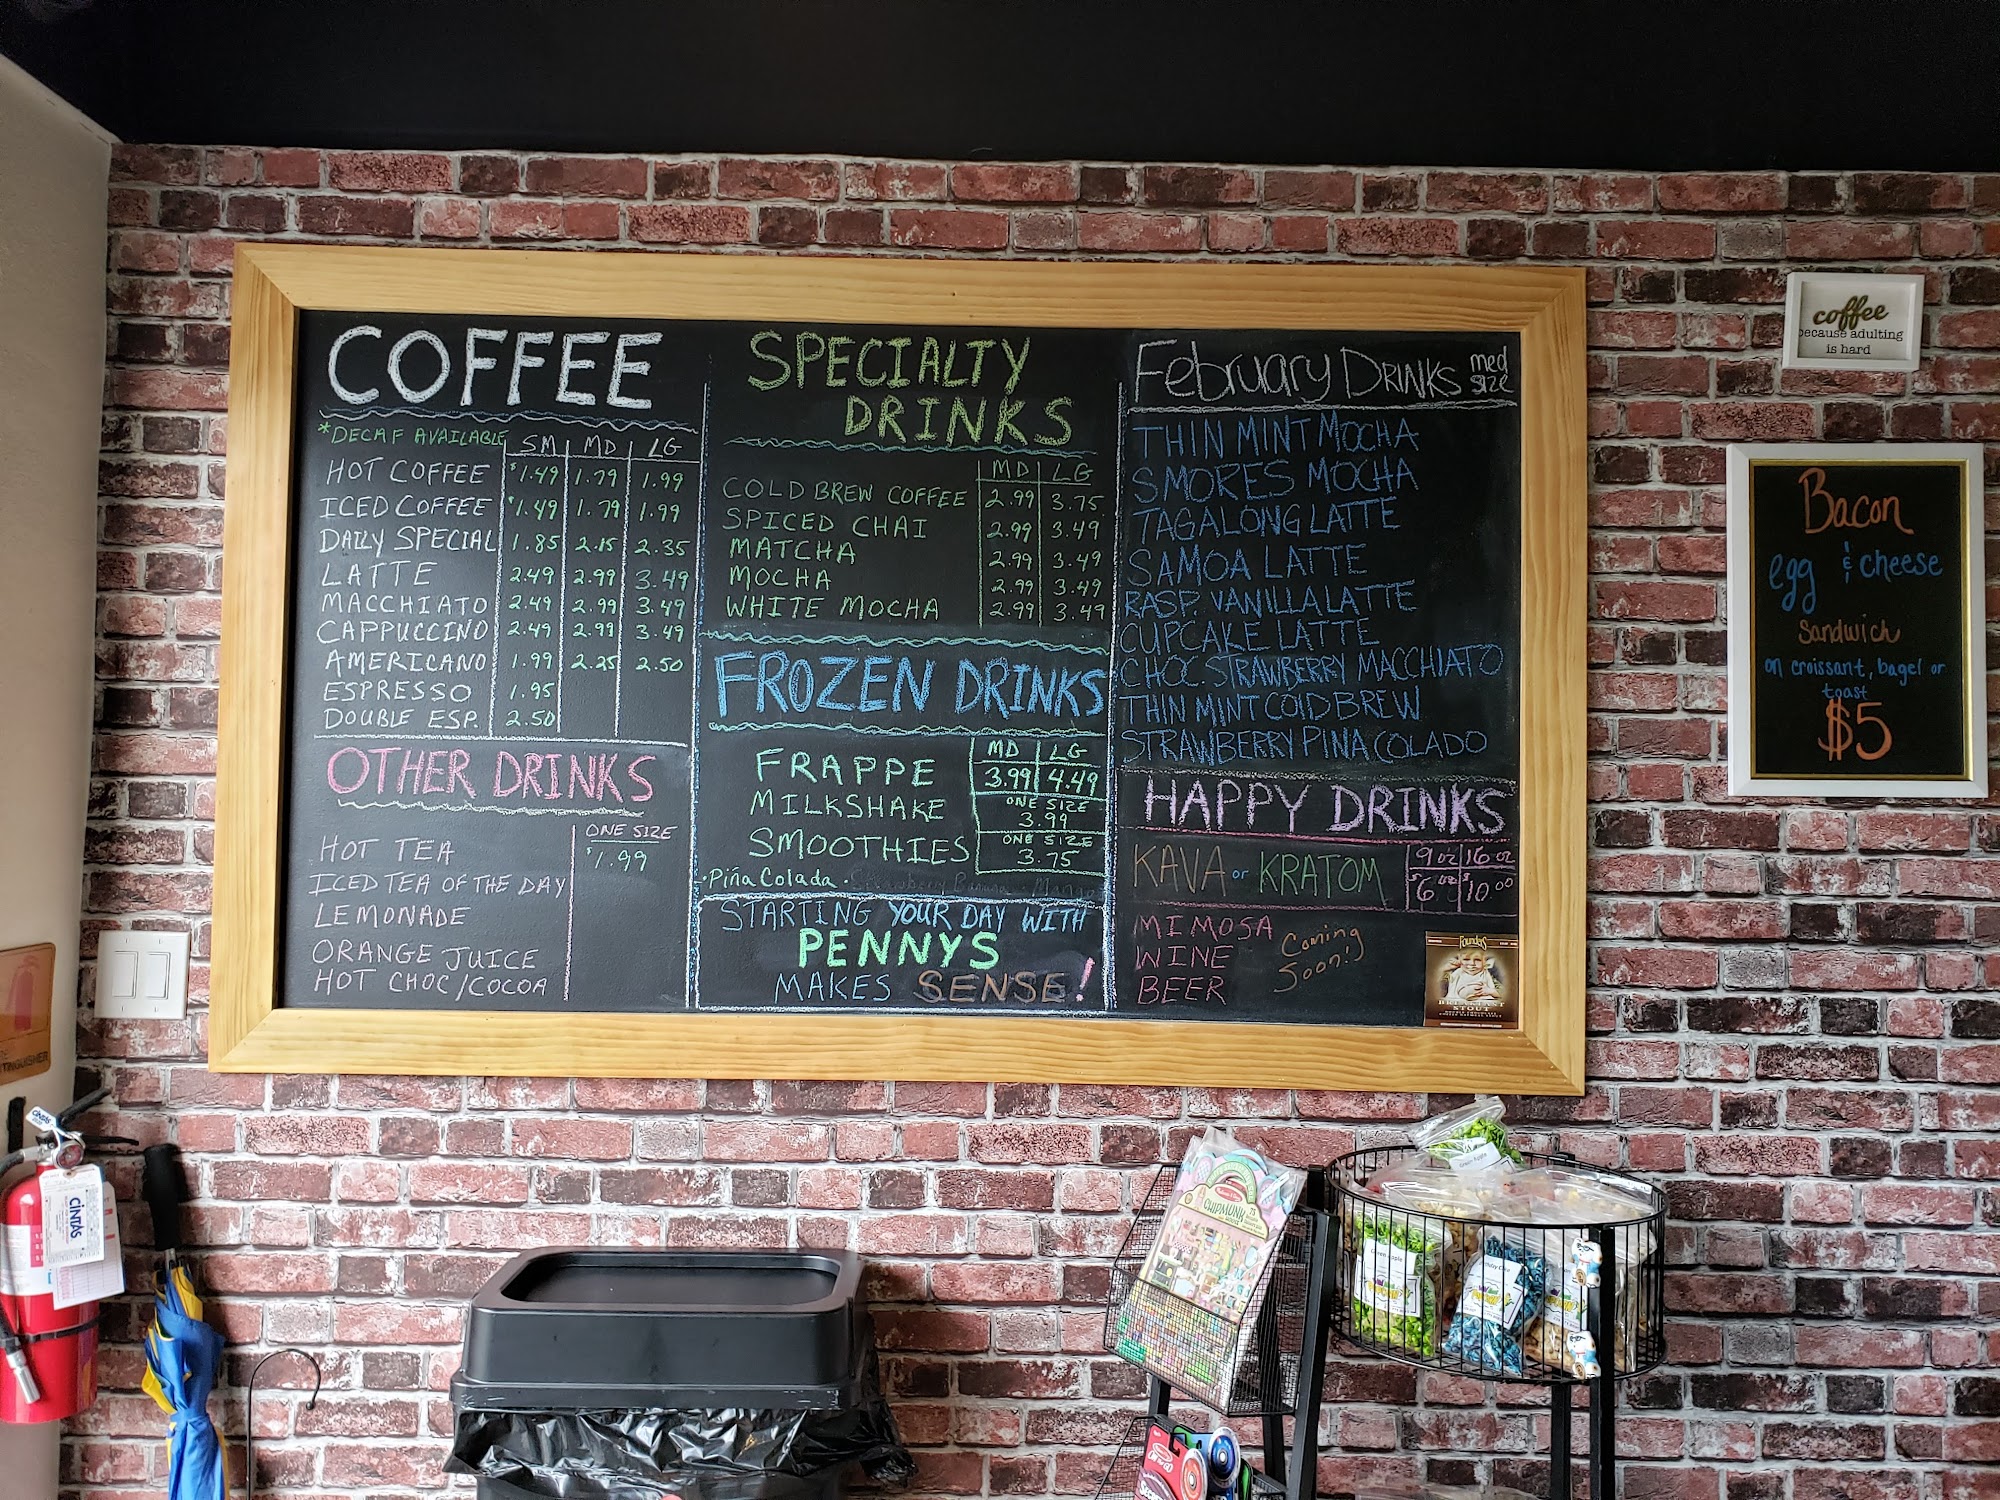 COFFEE
*DECAF AVAILABLE SM MD LG
HOT COFFEE $1.49 1.79 1.99
ICED COFFEE $1.49 1.79 1.99
DAILY SPECIAL 1.85 2.15 2.35
LATTE 2.49 2.99 3.49
MACCHIATO 2.49 2.99 3.49
CAPPUCCINO 2.49 2.99 3.49
AMERICANO 1.99 2.25 2.50
ESPRESSO 1.95
DOUBLE ESP. 2.50
OTHER DRINKS
ONE SIZE
HOT TEA $1.99
ICED TEA OF THE DAY
LEMONADE
ORANGE JUICE
HOT CHOC/COCOA
SPECIALTY
DRINKS
MD LG
COLD BREW COFFEE 2.99 3.75
SPICED CHAI 2.99 3.49
MATCHA 2.99 3.49
MOCHA 2.99 3.49
WHITE MOCHA 2.99 3.49
FROZEN DRINKS
MD LG
FRAPPE 3.99 4.49
MILKSHAKE ONE SIZE
3.99
SMOOTHIES ONE SIZE
3.75
•Piña Colada • Strawberry Banana • Mango
STARTING YOUR DAY WITH
PENNYS
MAKES SENSE!
February DRINKS med
SIZE
THIN MINT MOCHA
SMORES MOCHA
TAGALONG LATTE
SAMOA LATTE
RASP. VANILLA LATTE
CUPCAKE LATTE
CHOC. STRAWBERRY MACCHIATO
THIN MINT COLD BREW
STRAWBERRY PINA COLADO
HAPPY DRINKS
KAVA or KRATOM 9 oz 16 oz
$6.00 $10.00
MIMOSA
WINE
BEER
Coming
Soon!)
Founders
BREAKFAST
STOUT
coffee
because adulting
is hard
Bacon
egg & cheese
sandwich
on croissant, bagel or
toast
$5
CINTAS
CINTAS
CHIPMUNK
Green Apple
Green Apple